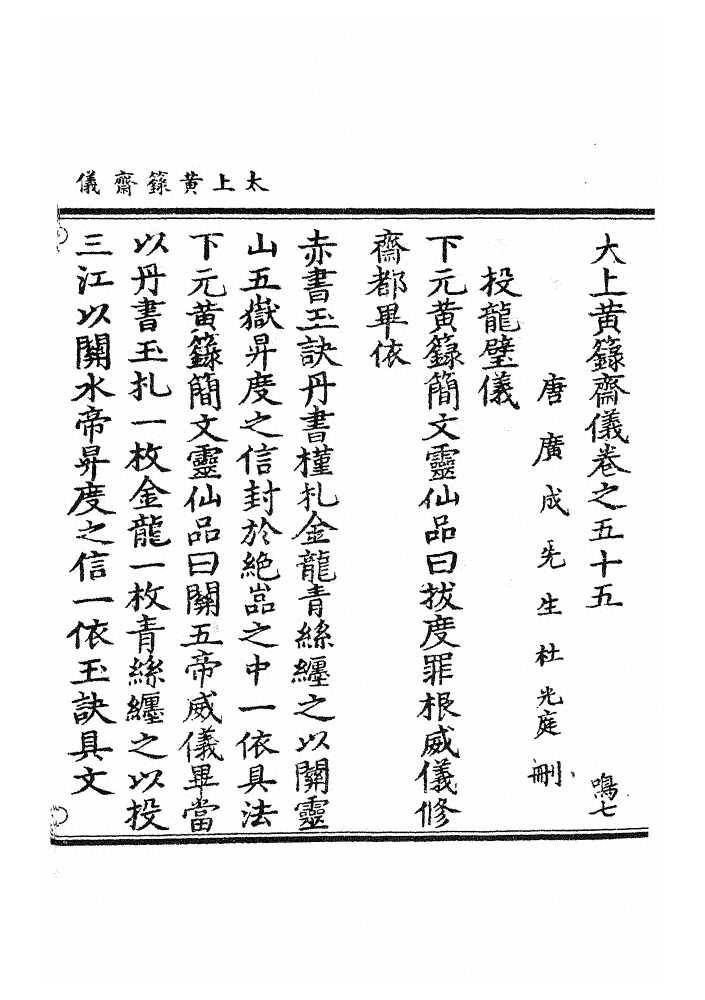 太上黃籙齋儀
大上黃籙齋儀卷之五十五
鳴七
唐廣成先生杜光庭刪
投龍璧儀
下元黃籙簡文靈仙品曰拔度罪根威儀修
齋都畢依
赤書玉訣丹書槿札金龍青絲纏之以關靈
山五嶽昇度之信封於絶嵓之中一依具法
下元黃籙簡文靈仙品曰關五帝威儀畢當
以丹書玉札一枚金龍一枚青絲纏之以投
三江以關水帝昇度之信一依玉訣具文